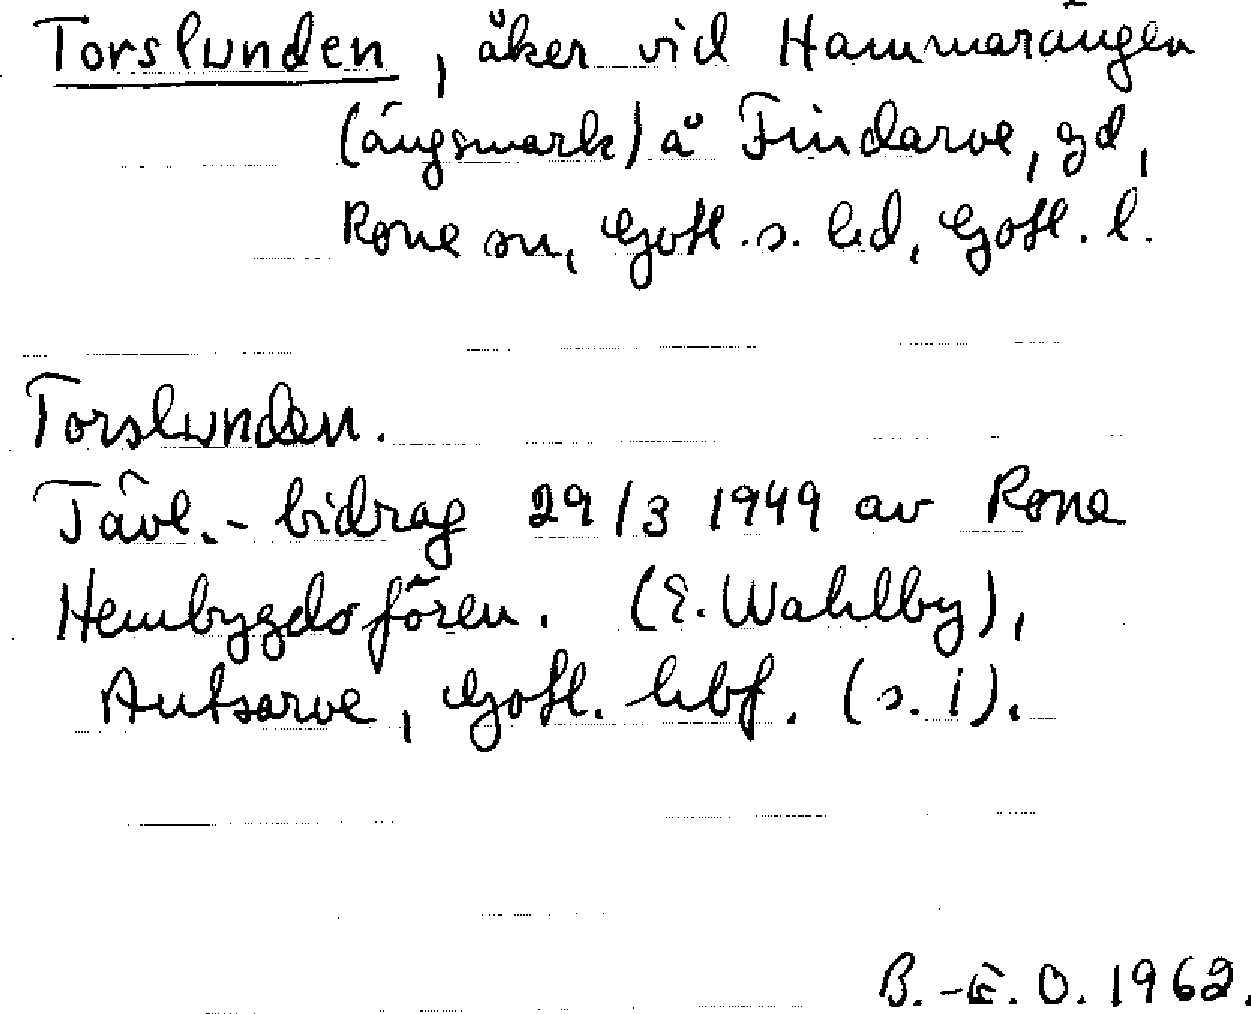 Torslunden, åker vid Hammarängen
(ängsmark) å Findarve, gd,
Rone sn, Gotl. s. hd, Gotl. l.
Torslunden.
Tävl.- bidrag 29/3 1949 av Rone
Hembygdsfören. (E. Wahlby),
Autsarve, Gotl. hbf. (s. 1).
B.-E. O. 1962.